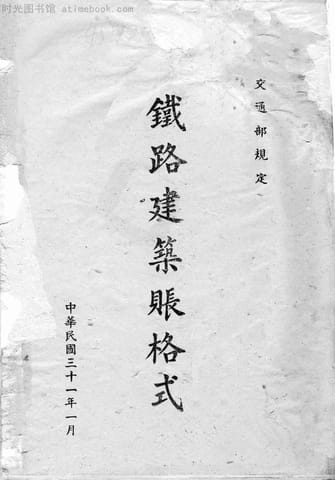 时光图书馆 - atimebook.com
交通部規定
鐵路建築賬格式
中華民國三十一年一月